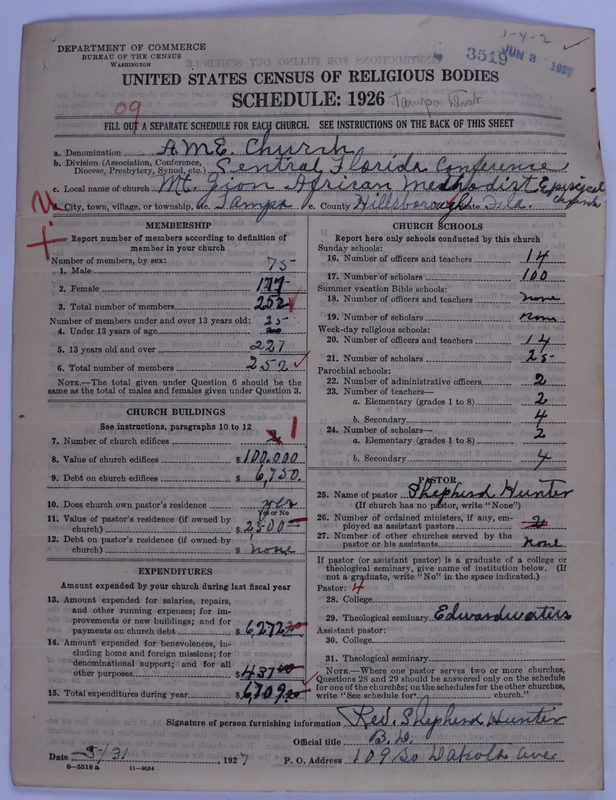 1-4-2 ✓
DEPARTMENT OF COMMERCE
BUREAU OF THE CENSUS
WASHINGTON
3519 JUN 3 1927
UNITED STATES CENSUS OF RELIGIOUS BODIES
SCHEDULE: 1926 Tampa Dist
09
FILL OUT A SEPARATE SCHEDULE FOR EACH CHURCH. SEE INSTRUCTIONS ON THE BACK OF THIS SHEET
a. Denomination A.M.E. Church
b. Division (Association, Conference, Diocese, Presbytery, Synod, etc.) Central Florida Conference
c. Local name of church Mt. Zion African Methodist Episcopal Church
d. City, town, village, or township, etc. Tampa e. County Hillsborough State Fla.
MEMBERSHIP
Report number of members according to definition of member in your church
Number of members, by sex:
1. Male 75
2. Female 177
3. Total number of members 252
Number of members under and over 13 years old:
4. Under 13 years of age 25
5. 13 years old and over 227
6. Total number of members 252 ✓
NOTE.—The total given under Question 6 should be the same as the total of males and females given under Question 3.
CHURCH BUILDINGS
See instructions, paragraphs 10 to 12
7. Number of church edifices 1
8. Value of church edifices $ 100.000
9. Debt on church edifices $ 6,750.
10. Does church own pastor's residence yes
Yes or No
11. Value of pastor's residence (if owned by church) $ 2500
12. Debt on pastor's residence (if owned by church) $ none
EXPENDITURES
Amount expended by your church during last fiscal year
13. Amount expended for salaries, repairs, and other running expenses; for improvements or new buildings; and for payments on church debt $ 6,272
14. Amount expended for benevolences, including home and foreign missions; for denominational support; and for all other purposes $ 437.00
15. Total expenditures during year $ 6709.00
CHURCH SCHOOLS
Report here only schools conducted by this church
Sunday schools:
16. Number of officers and teachers 14
17. Number of scholars 100
Summer vacation Bible schools:
18. Number of officers and teachers none
19. Number of scholars none
Week-day religious schools:
20. Number of officers and teachers 14
21. Number of scholars 25
Parochial schools:
22. Number of administrative officers 2
23. Number of teachers—
a. Elementary (grades 1 to 8) 2
b. Secondary 4
24. Number of scholars—
a. Elementary (grades 1 to 8) 2
b. Secondary 4
PASTOR
25. Name of pastor Shepherd Hunter
(If church has no pastor, write "None")
26. Number of ordained ministers, if any, employed as assistant pastors 2
27. Number of other churches served by the pastor or his assistants none
If pastor (or assistant pastor) is a graduate of a college or theological seminary, give name of institution below. (If not a graduate, write "No" in the space indicated.)
Pastor: 4
28. College
29. Theological seminary Edwardwaters
Assistant pastor:
30. College
31. Theological seminary
NOTE.—Where one pastor serves two or more churches, Questions 28 and 29 should be answered only on the schedule for one of the churches; on the schedules for the other churches, write "See schedule for church."
Signature of person furnishing information Rev. Shepherd Hunter
Official title B.D.
Date 5/31, 1927 P. O. Address 109 So Dakota ave
6-5518 a 11-9664